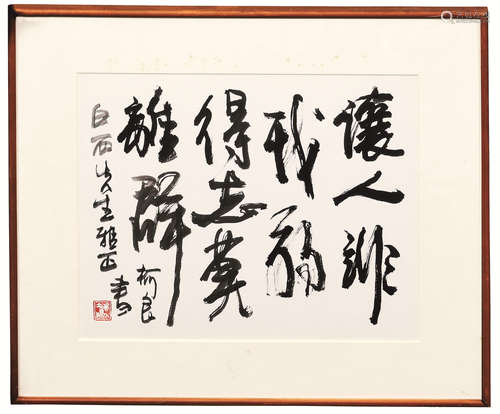 讓人非
我弱
得志莫
離群
白石先生雅正
柯良
書